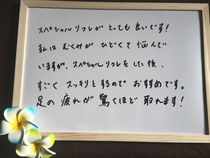 スペシャルリフレがとっても良いです!
私はむくみがひどくて悩んで
いますが、スペシャルリフレをした後、
すごくスッキリとするのでおすすめです。
足の疲れが驚くほど取れます!